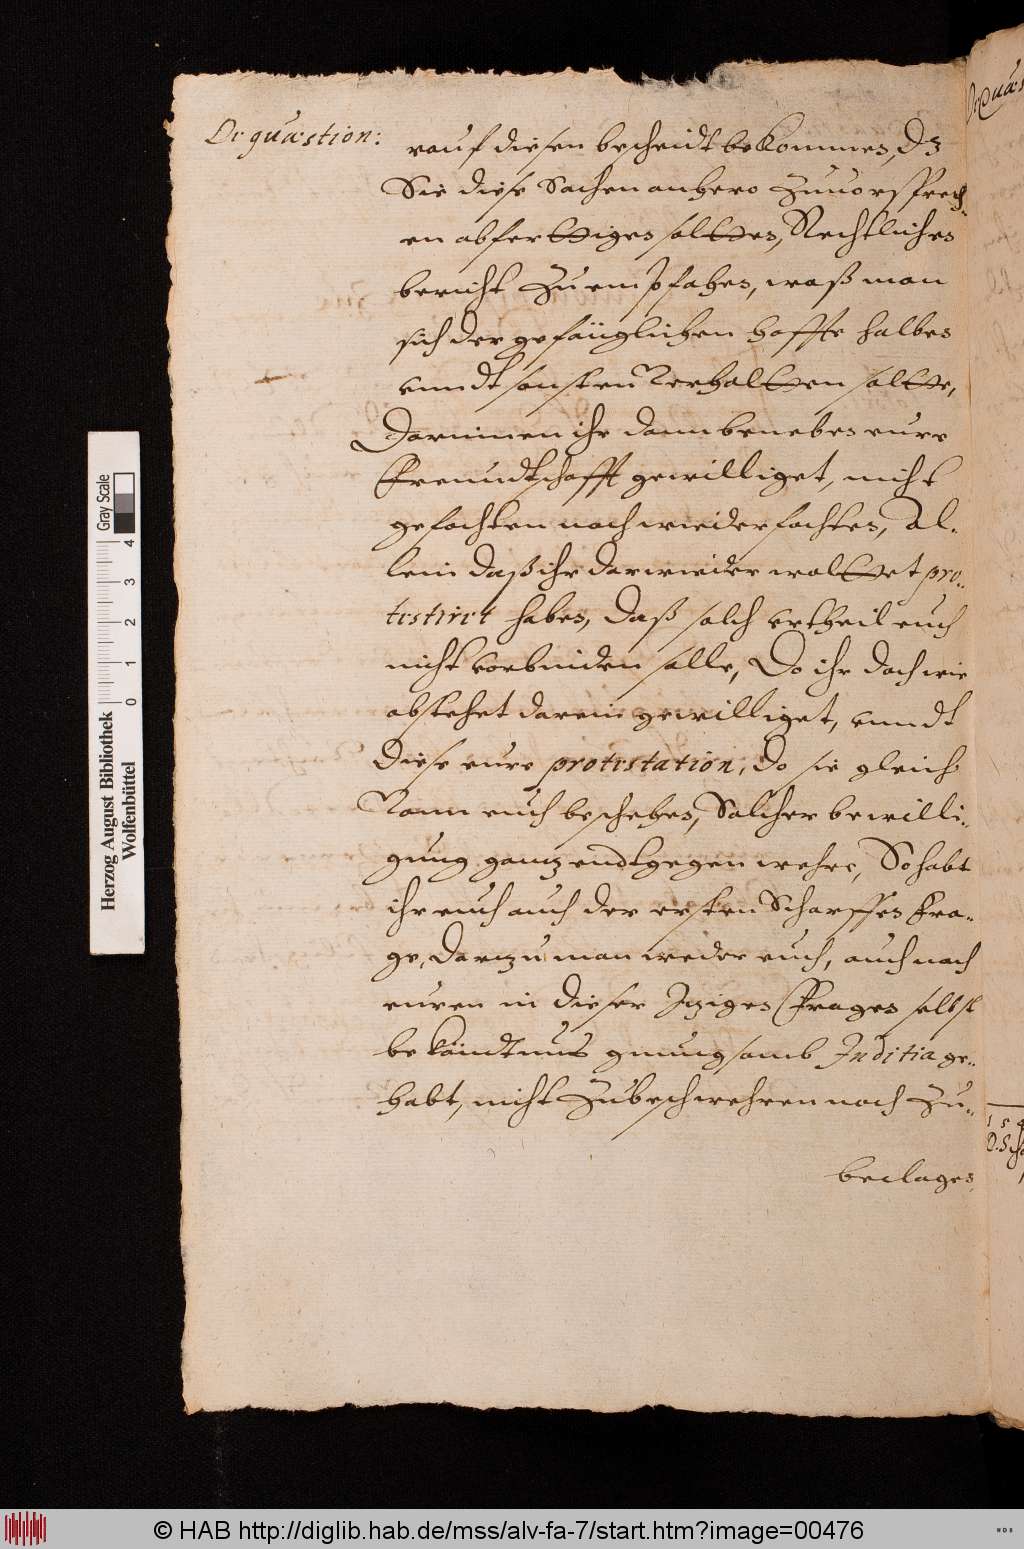 De quæstion:
rauf diesen bescheidt bekommen, dz
Sie diese Sachen anhero zuuorsprech-
en abferttigen soltten, Rechtliches
bericht zu empfahen, waß man
sich der gefänglichen haffte halben
vnndt sonsten verhaltten soltte,
Darinnen ihr dann benebes eure
Freundtschafft gewilliget, nicht
gefochten noch wiederfochten, Al-
lein daß ihr darwieder woltet pro-
testirt haben, daß solch vrtheil euch
nicht vorbinden solle, Do ihr doch wie
obstehet darein gewilliget, vnndt
diese eure protestation, do sie gleich
von euch beschehen, Solcher bewilli-
gung gantz endtgegen wehre, So habt
ihr euch auch der ersten Scharffen Fra-
ge, dartzu man wieder euch, auch nach
euren in dieser Itzigen Fragen selbst
bekändtnus gnungsamb Inditia ge-
habt, nicht zubeschwehren noch zu-
beclagen,
Quæs
15
D. Sch
Herzog August Bibliothek
Wolfenbüttel
0 1 2 3 4
Gray Scale
© HAB http://diglib.hab.de/mss/alv-fa-7/start.htm?image=00476